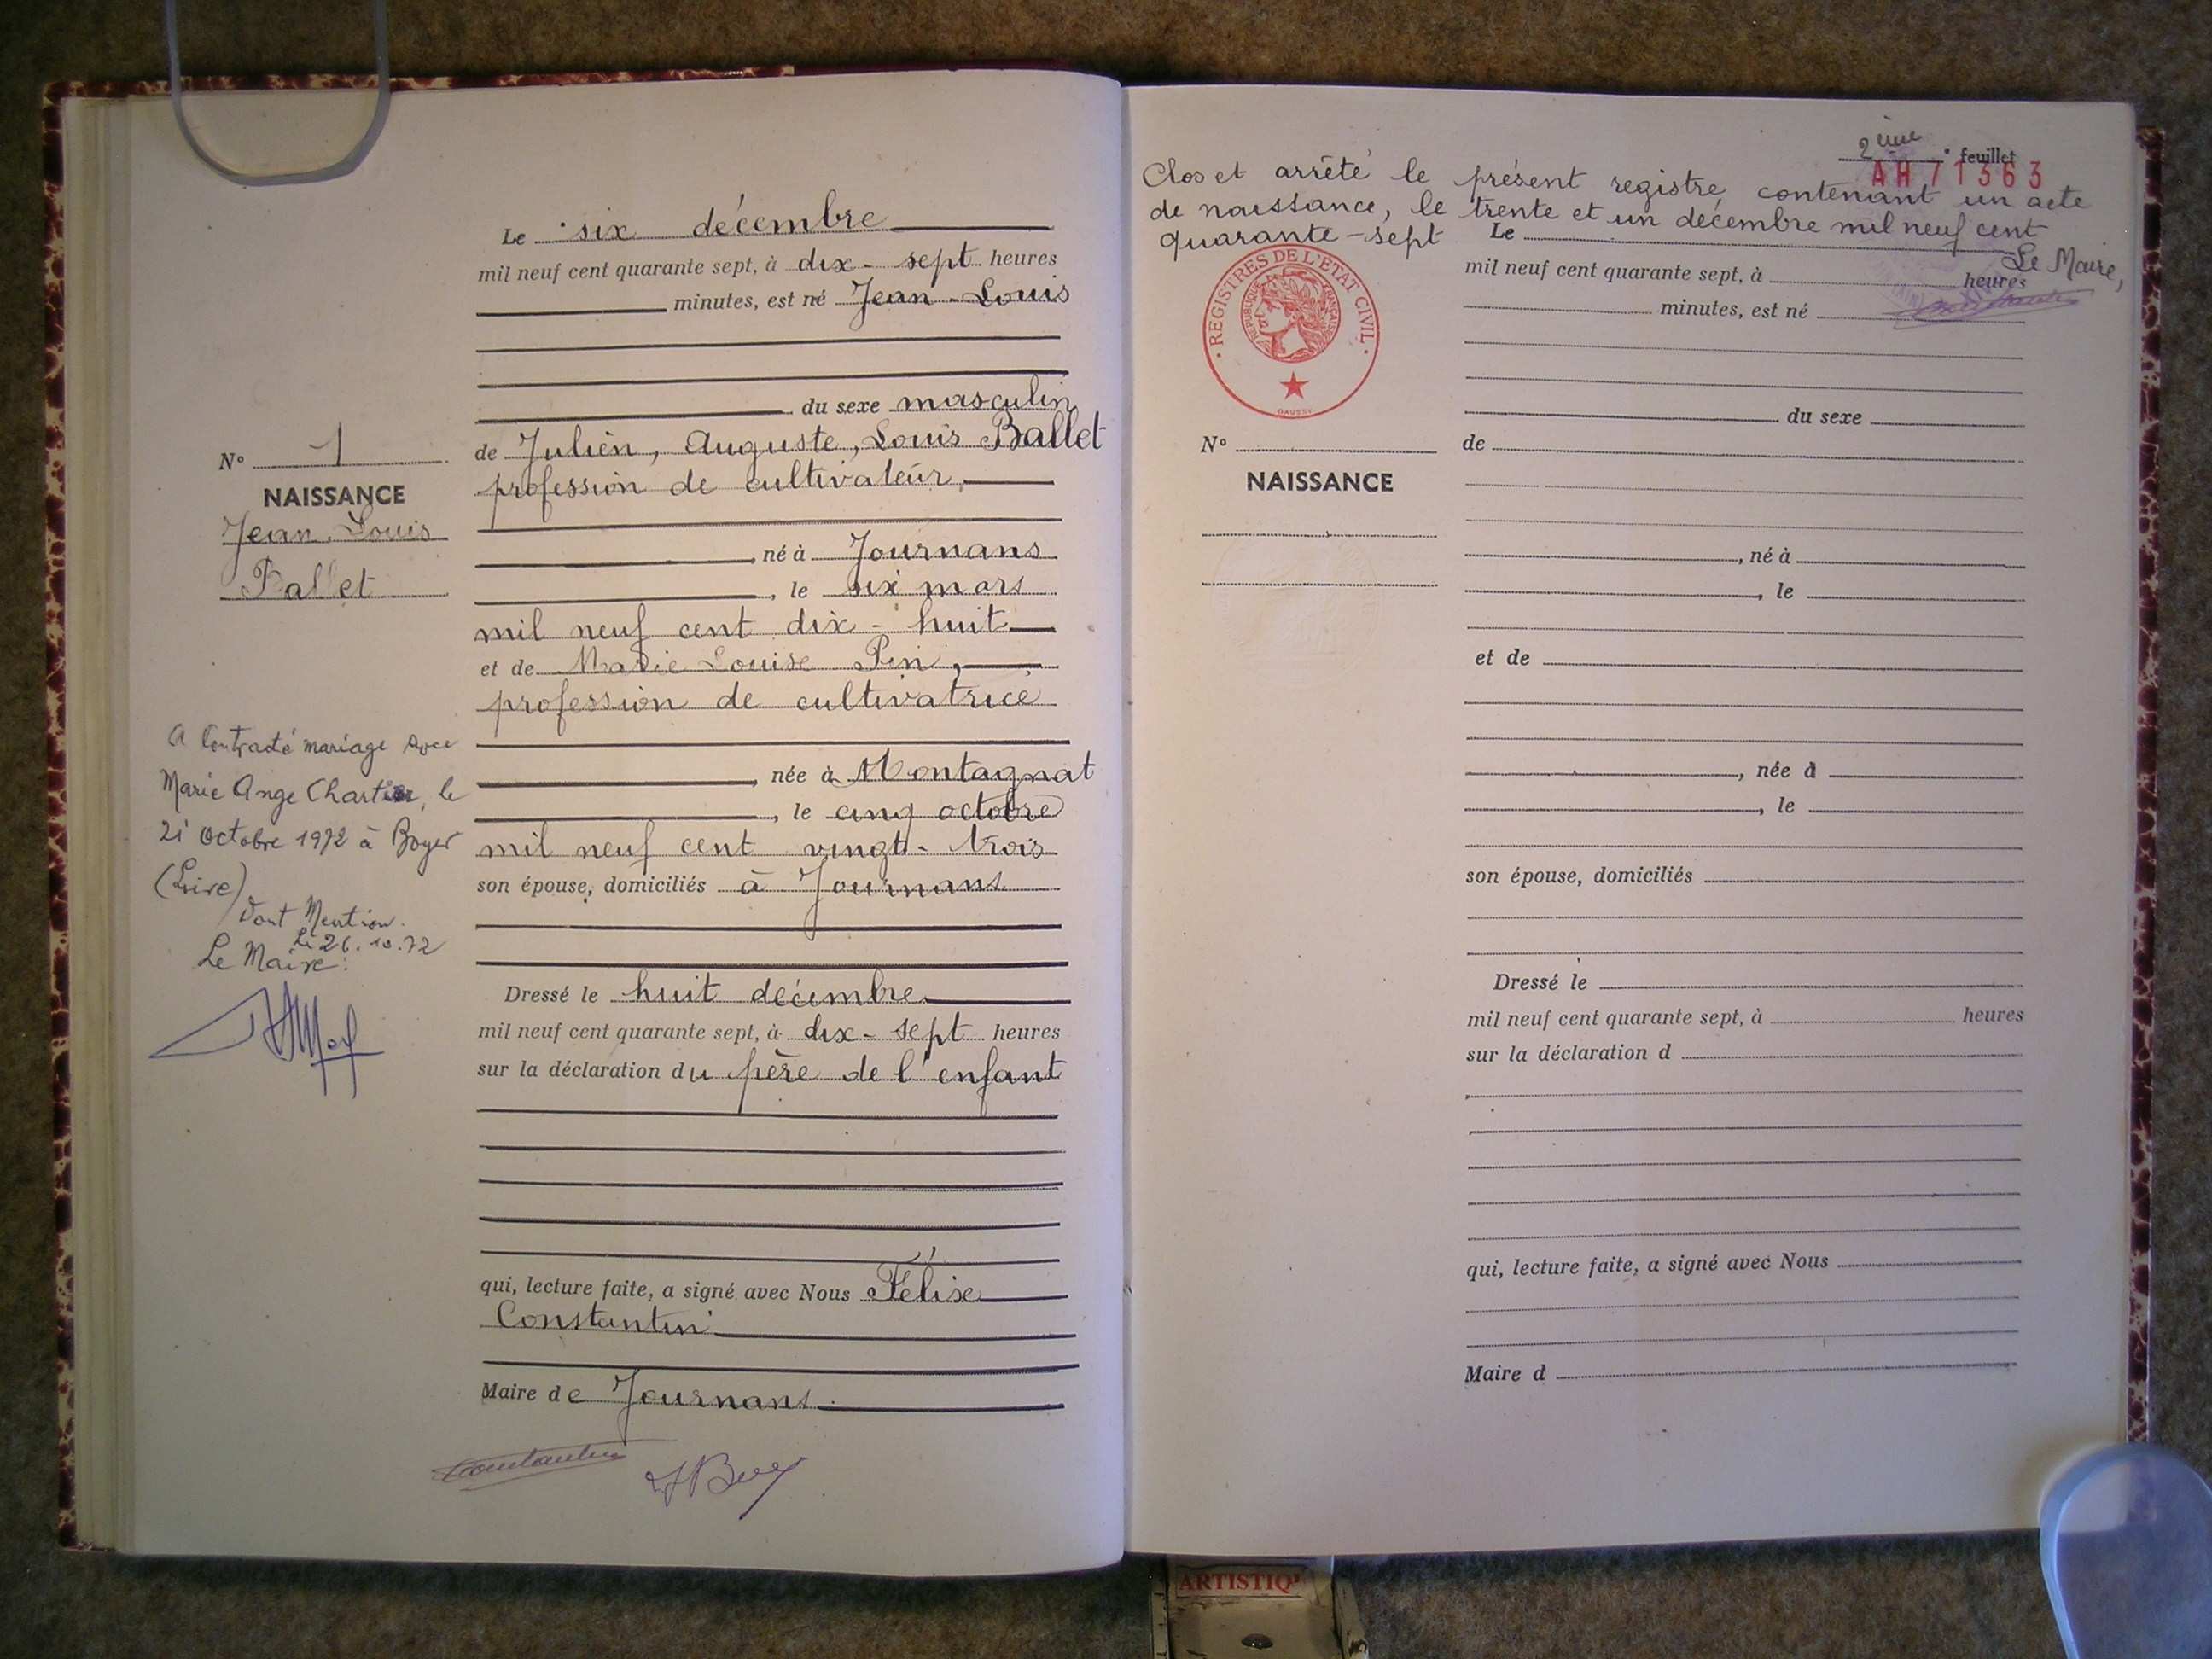 Le six décembre
mil neuf cent quarante sept, à dix-sept heures
minutes, est né Jean-Louis
du sexe masculin
de Julien, Auguste, Louis Ballet
profession de cultivateur,
, né à Journans
, le six mars
mil neuf cent dix-huit
et de Marie Louise Pin,
profession de cultivatrice
, née à Montagnat
, le cinq octobre
mil neuf cent vingt-trois
son épouse, domiciliés à Journans
Dressé le huit décembre
mil neuf cent quarante sept, à dix-sept heures
sur la déclaration du père de l'enfant
qui, lecture faite, a signé avec Nous Félix
Constantin
Maire de Journans
Constantin
N° 1
NAISSANCE
Jean-Louis
Ballet
A Contracté mariage avec
Marie Ange Chartier, le
21 octobre 1972 à Boyer
(Loire)
Dont Mention.
Le 26.10.72
Le Maire:
2ème feuillet
AH71363
Clos et arrêté le présent registre contenant un acte
de naissance, le trente et un décembre mil neuf cent
quarante-sept
Le Maire,
REGISTRES DE L'ETAT CIVIL
REPUBLIQUE FRANÇAISE
DAUSSY
Le
mil neuf cent quarante sept, à heures
minutes, est né
du sexe
N°
NAISSANCE
de
, né à
, le
et de
, née à
, le
son épouse, domiciliés
Dressé le
mil neuf cent quarante sept, à heures
sur la déclaration d
qui, lecture faite, a signé avec Nous
Maire d
ARTISTIQ